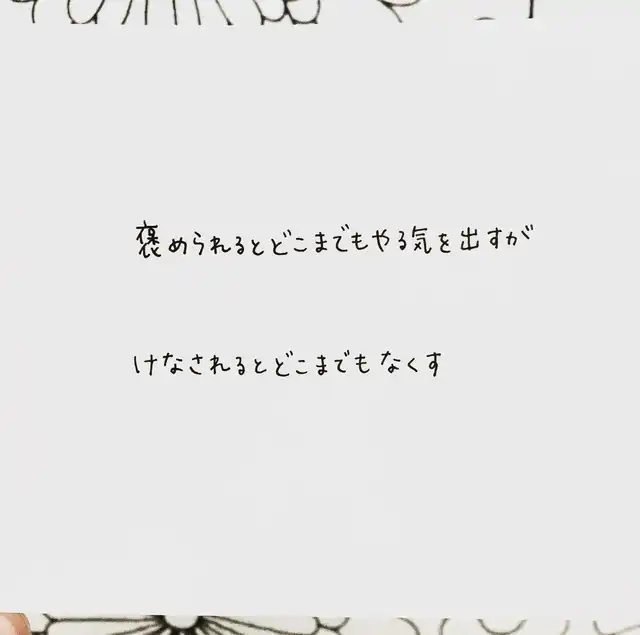 褒められるとどこまでもやる気を出すが
けなされるとどこまでもなくす